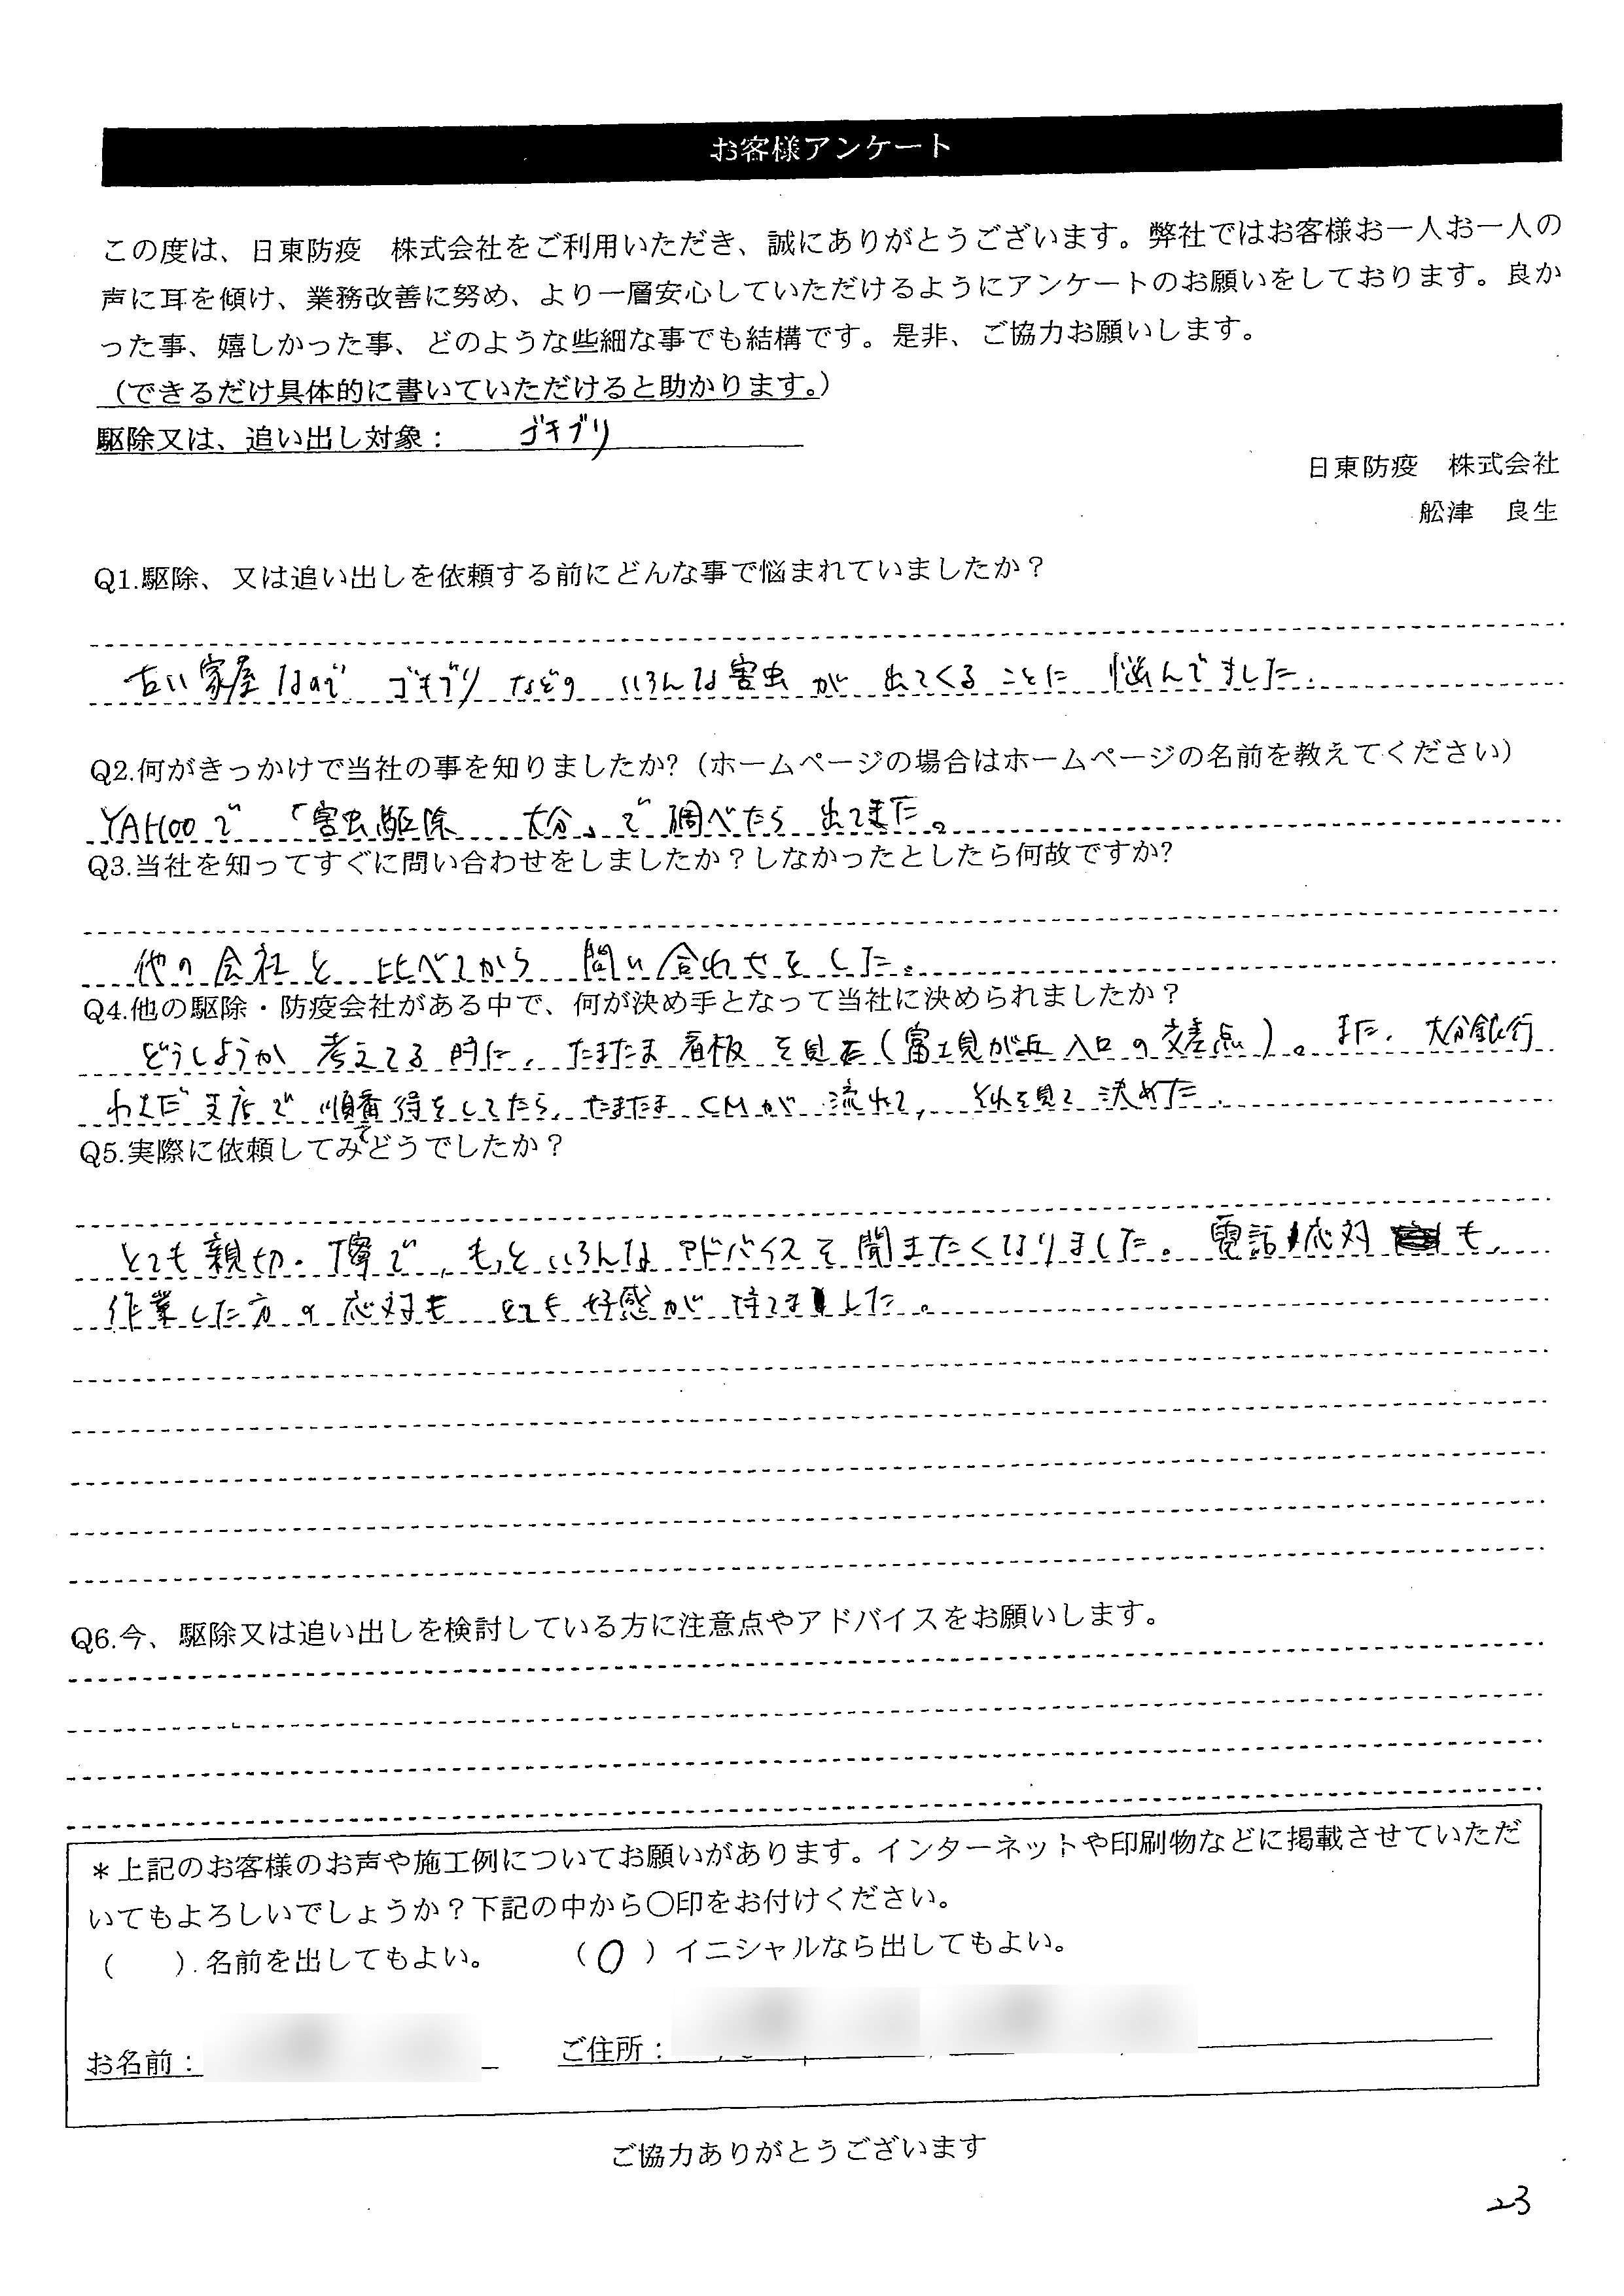 お客様アンケート
この度は、日東防疫 株式会社をご利用いただき、誠にありがとうございます。弊社ではお客様お一人お一人の
声に耳を傾け、業務改善に努め、より一層安心していただけるようにアンケートのお願いをしております。良か
った事、嬉しかった事、どのような些細な事でも結構です。是非、ご協力お願いします。
（できるだけ具体的に書いていただけると助かります。）
駆除又は、追い出し対象： ゴキブリ
日東防疫 株式会社
舩津 良生
Q1.駆除、又は追い出しを依頼する前にどんな事で悩まれていましたか？
古い家屋なので ゴキブリ などの いろんな害虫が 出てくることに 悩んでました.
Q2.何がきっかけで当社の事を知りましたか?（ホームページの場合はホームページの名前を教えてください）
YAHOOで 「害虫駆除 大分」で調べたら 出てきた。
Q3.当社を知ってすぐに問い合わせをしましたか？しなかったとしたら何故ですか?
他の会社と 比べてから 問い合わせをした。
Q4.他の駆除・防疫会社がある中で、何が決め手となって当社に決められましたか？
どうしようか 考えてる時に、たまたま 看板を見た(富士見が丘入口の交差点)。また、大分銀行
わさだ支店で 順番待をしてたら、たまたま CMが 流れて、それを見て 決めた.
Q5.実際に依頼してみてどうでしたか？
とても親切・丁寧で、もっといろんなアドバイスを聞きたくなりました。電話応対も、
作業した方の応対も とても好感が 持てました。
Q6.今、駆除又は追い出しを検討している方に注意点やアドバイスをお願いします。
＊上記のお客様のお声や施工例についてお願いがあります。インターネットや印刷物などに掲載させていただ
いてもよろしいでしょうか？下記の中から〇印をお付けください。
（ ）.名前を出してもよい。 （〇）イニシャルなら出してもよい。
お名前： ご住所：
ご協力ありがとうございます
23